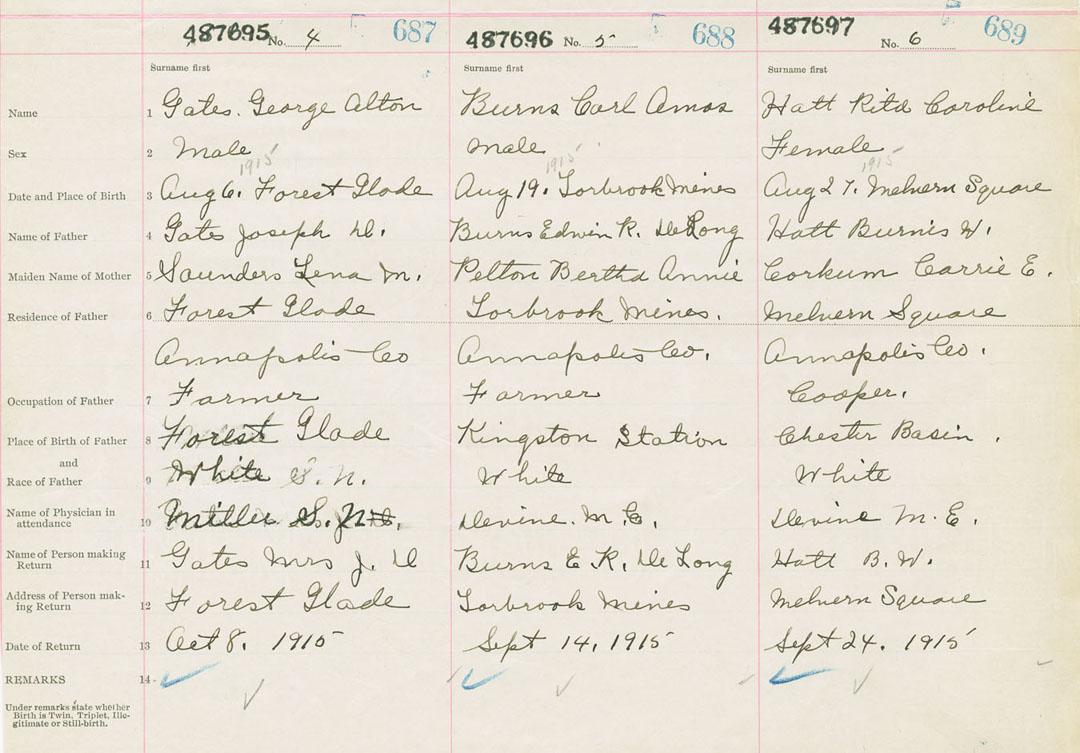 487695 No. 4 687 487696 No. 5 688 487697 No. 6 689
Surname first Surname first Surname first
Name 1 Gates. George Alton Burns Carl Amos Hatt Rita Caroline
Sex 2 Male Male Female
1915 1915 1915
Date and Place of Birth 3 Aug 6. Forest Glade Aug 19. Torbrook Mines Aug 27. Melvern Square
Name of Father 4 Gates Joseph D. Burns Edwin R. DeLong Hatt Burnis W.
Maiden Name of Mother 5 Saunders Lena M. Pelton Bertha Annie Corkum Carrie E.
Residence of Father 6 Forest Glade Torbrook Mines. Melvern Square
Annapolis Co Annapolis Co. Annapolis Co.
Occupation of Father 7 Farmer Farmer Cooper.
Place of Birth of Father 8 Forest Glade Kingston Station Chester Basin.
and
Race of Father 9 White S. N. White White
Name of Physician in
attendance 10 Miller S. N. Devine. M. E. Devine M. E.
Name of Person making
Return 11 Gates Mrs J. D Burns E R. De Long Hatt B. W.
Address of Person mak-
ing Return 12 Forest Glade Torbrook Mines Melvern Square
Date of Return 13 Oct 8. 1915 Sept 14, 1915 Sept 24. 1915
REMARKS 14
Under remarks state whether
Birth is Twin, Triplet, Ille-
gitimate or Still-birth.